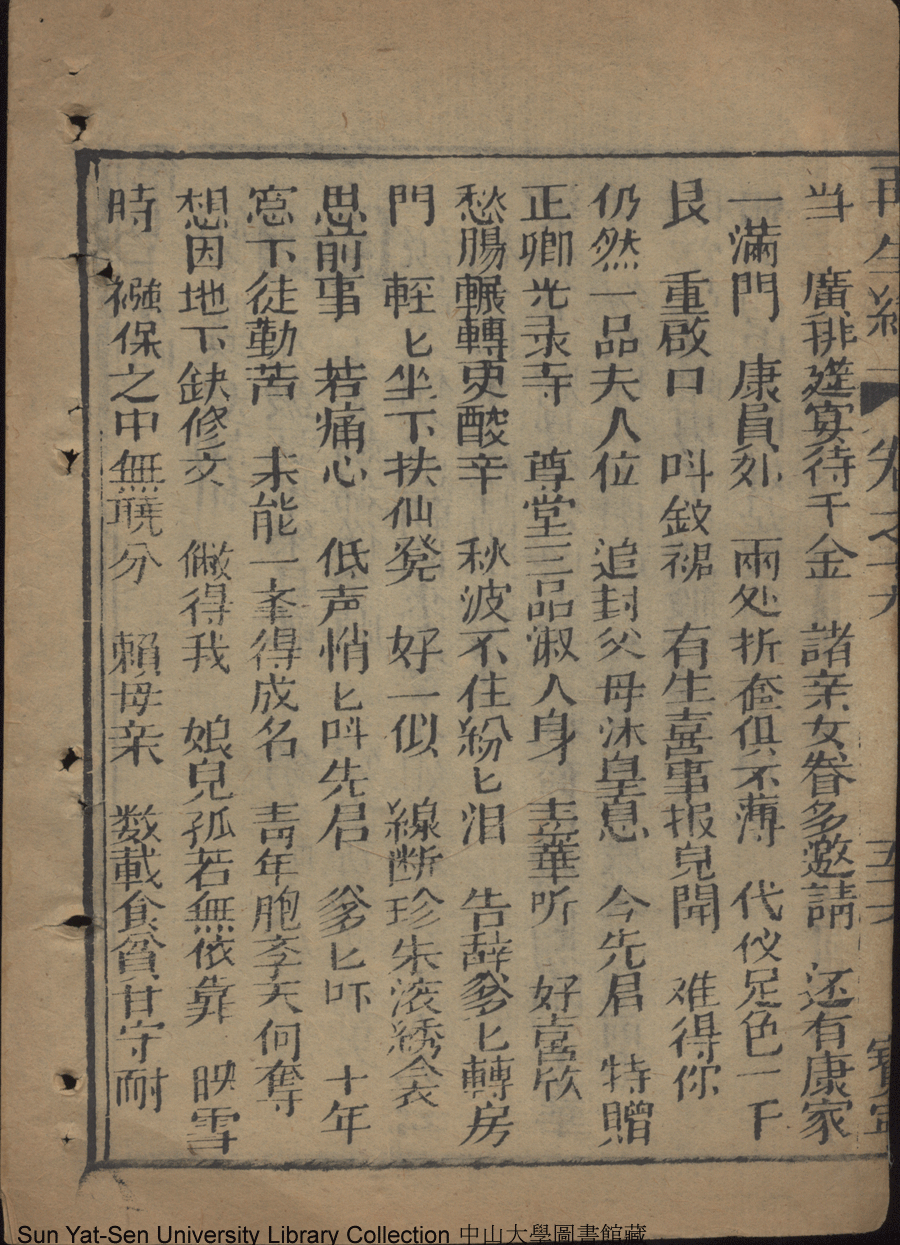 再生緣 卷之十六 五十六 寳寧
当 廣排筵宴待千金 諸亲女眷多邀請 还有康家
一滿門 康員外 兩处折奩俱不薄 代仪足色一千
艮 重啟口 呌釵裙 有生喜事报兒聞 难得你
仍然一品夫人位 追封父母沐皇恩 今先君 特贈
正卿光录寺 尊堂三品淑人身 孟華听 好喜欣
愁腸輾轉更酸辛 秋波不住紛匕泪 告辞爹匕轉房
門 輕匕坐下扶仙凳 好一似 線断珍朱滚綉衾
思前事 若痛心 低声悄匕呌先君 爹匕吓 十年
窓下徒勤苦 未能一峯得成名 青年胞李天何奪
想因地下缺修文 儆得我 娘兒孤若無依靠 映雪
時 襁保之中無曉分 賴母亲 数載食貧甘守耐
Sun Yat-Sen University Library Collection 中山大學圖書館藏